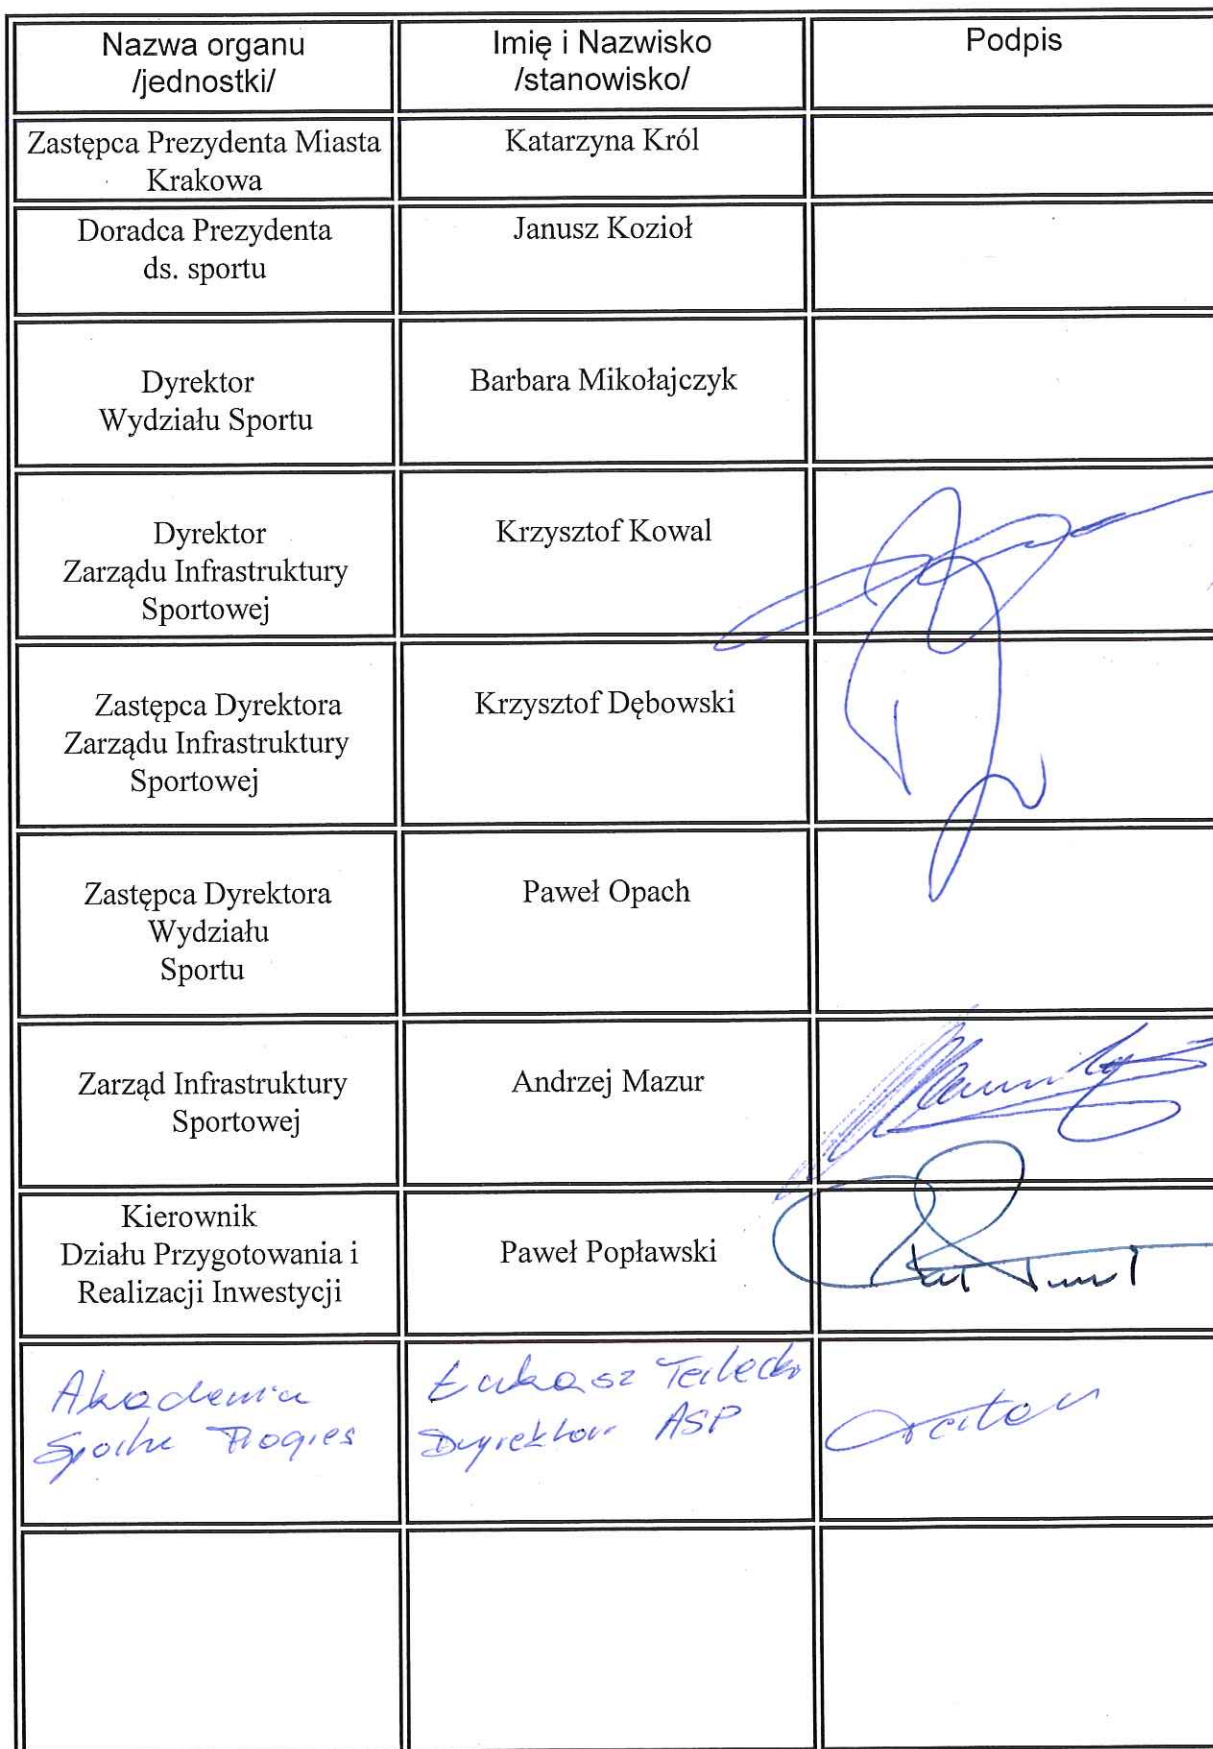 Nazwa organu
/jednostki/
Imię i Nazwisko
/stanowisko/
Podpis
Zastępca Prezydenta Miasta
Krakowa
Katarzyna Król
Doradca Prezydenta
ds. sportu
Janusz Kozioł
Dyrektor
Wydziału Sportu
Barbara Mikołajczyk
Dyrektor
Zarządu Infrastruktury
Sportowej
Krzysztof Kowal
Zastępca Dyrektora
Zarządu Infrastruktury
Sportowej
Krzysztof Dębowski
Zastępca Dyrektora
Wydziału
Sportu
Paweł Opach
Zarząd Infrastruktury
Sportowej
Andrzej Mazur
Kierownik
Działu Przygotowania i
Realizacji Inwestycji
Paweł Popławski
Akademia
Sportu Progres
Łukasz
Dyrektor ASP